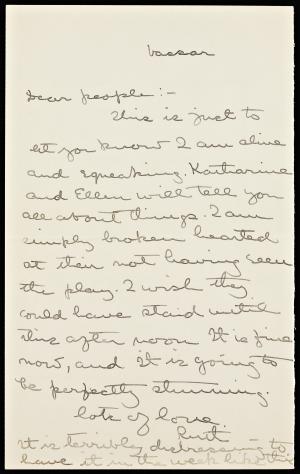 Vassar
Dear people:-
This is just to
let you know I am alive
and squeaking. Katharine
and Ellen will tell you
all about things. I am
simply broken hearted
at their not having seen
the play. I wish they
could have staid until
this after noon It is fine
now, and it is going to
be perfectly stunning.
lots of love.
Ruth
it is terribly distressing to
have it in the week like this